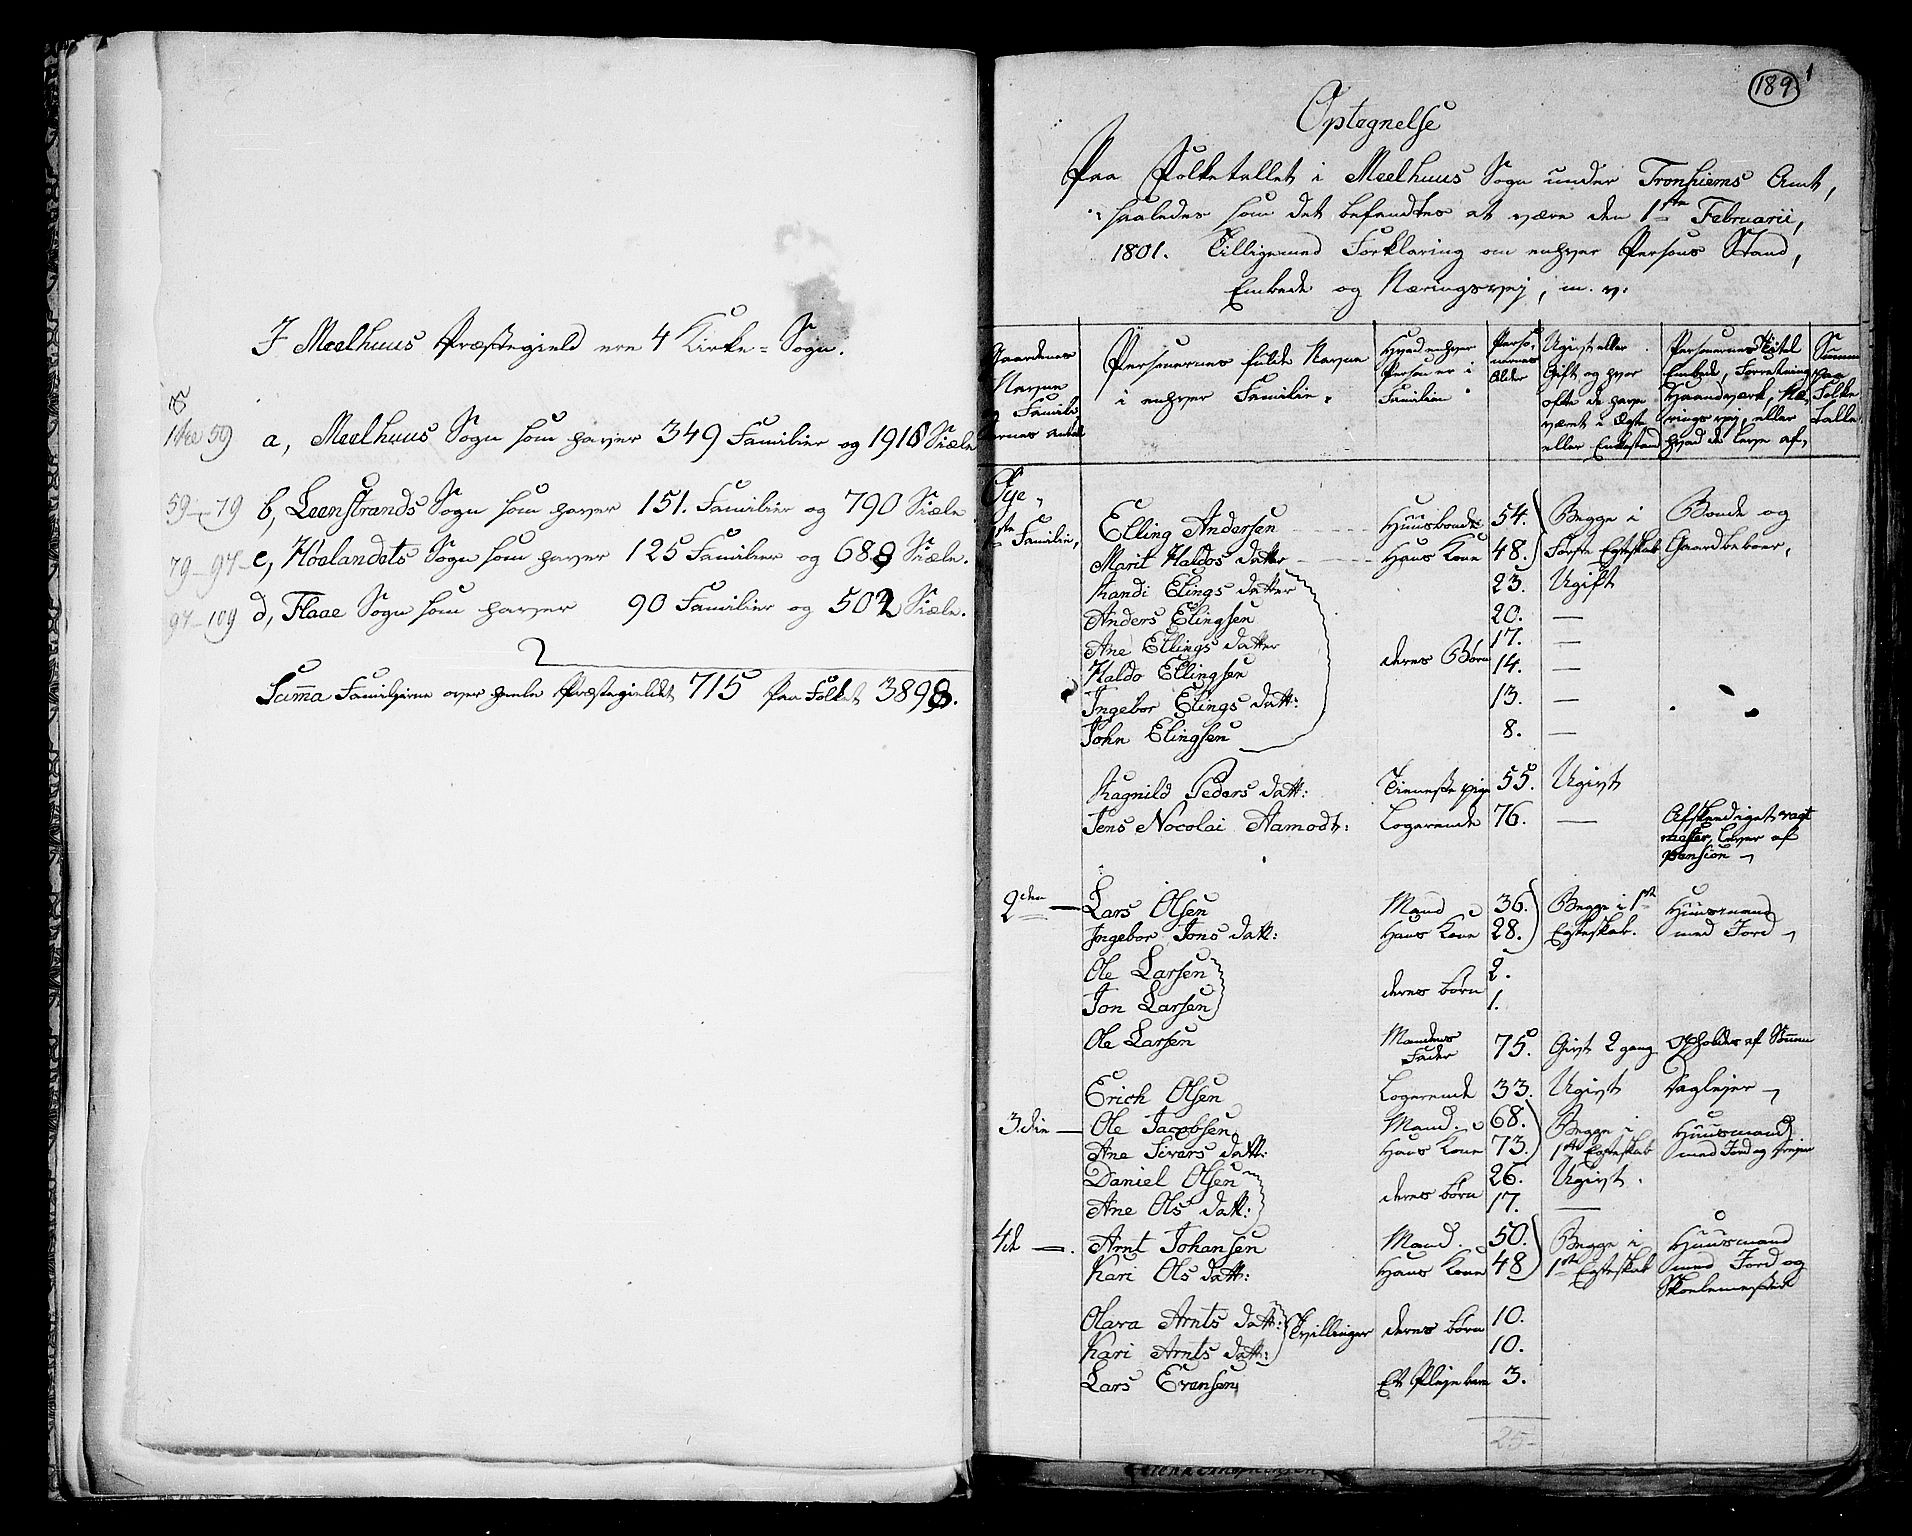 I Meelhuus Præstegield ere 4 Kirke=Sogn.
1ste 59 a, Meelhuus Sogn som haver 349 Familier og 1918 Siæle
59-79 b, Leenstrands Sogn som haver 151. Familier og 790 Siæle
79-97- c, Høelandets Sogn som haver 125 Familier og 688 Siæle.
97-109 d, Flaae Sogn som haver 90 Familier og 502 Siæle.
Summa Familierne over heele Præstegieldet 715 Paa Folket 3898.
189
1
Optegnelse
Paa Folketallet i Meelhuus Sogn under Tronhiems Amt,
saaledes som det befandtes at være den 1ste Februarii,
1801. Tilligemed Forklaring om enhver Persons Stand,
Embede og Næringsvej, m. v:
Gaardenes Navne og Famili- ernes antal
Personernes fulde Navne i enhver Familie.
Hvad enhver Person er i Familien
Perso- nernes Alder
Ugivt eller Gift, og hvor ofte de have været i Ægte eller Enkestand
Personernes Titel Embede, Forretning, Haandværk, Næ- rings vej, eller hvad de leve af,
Summa paa Folke tallet
Øye,
1ste Familie, Elling Andersen Huusbonde 54. Begge i Bonde og
Marit Haldos datter Hans Kone 48. Første Egteskab Gaardbeboer,
Randi Elings datter 23. Ugift
Anders Elingsen 20. —
Ane Ellings datter 17. —
deres Børn
Haldo Ellingsen 14. —
Ingebor Elings datt: 13. —
John Elingsen 8. —
Ragnild Peders datt: Tienneste pige 55. Ugivt
Jens Nocolai Aamodt: Logerende 76. — Afskendiget vagt
mester, lever af
pension
2den — Lars Olsen Mand 36. Begge i 1ste Huusmand
Ingebor Jons datt: Hans Kone 28. Egteskab. med Jord
Ole Larsen 2.
deres børn
Jon Larsen 1.
Ole Larsen Mandens Fader 75. Givt 2 gang opholdes af Sønnen
Erich Olsen Logerende 33. Ugivt Daglejer
3.die — Ole Jacobsen Mand. 68. Begge i Huusmand
Ane Sivers datt: Hans Kone 73. 1ste Egteskab med Jord og Drejer
Daniel Olsen 26. Ugivt.
deres børn
Ane Ols datt: 17. —
4de —. Arnt Johansen Mand. 50. Begge i Huusmand
Kari Ols datt: Hans Kone 48 1ste Egteskab med Jord og
Skoelemester
Olava Arnts datt: Tvillinger deres børn 10.
Kari Arnts datt: 10.
Lars Evensen Et Pleje barn 3.
25